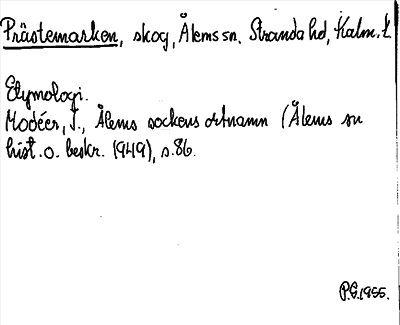 Prästemarken, skog, Ålems sn. Stranda hd, Kalm. l.
Etymologi.
Modéer, I., Ålems sockens ortnamn (Ålems sn
hist. o. beskr. 1949), s. 86.
P.G. 1955.